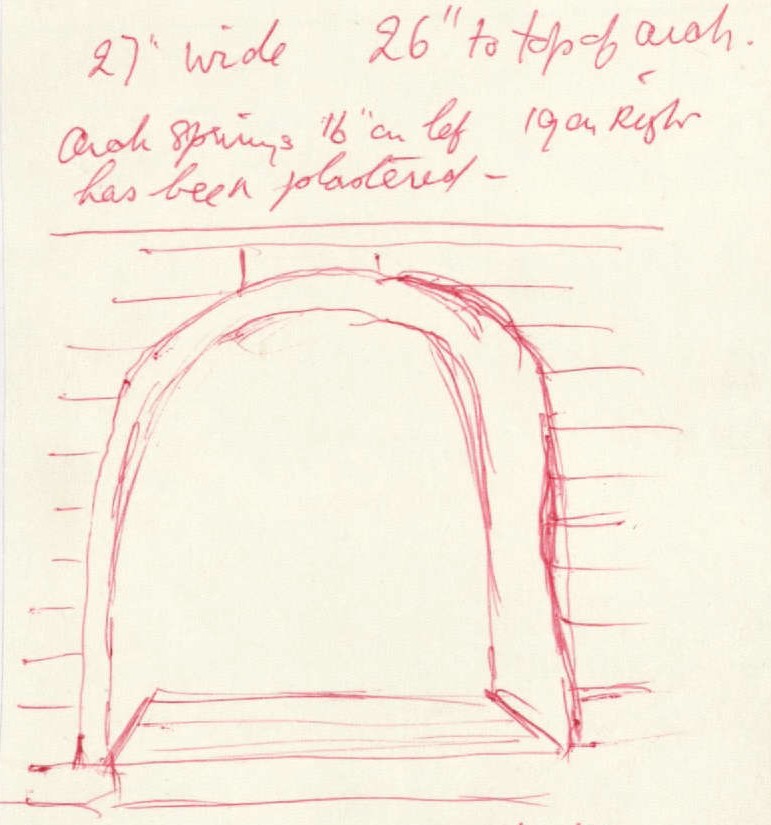 27" wide 26" to top of arch.
arch springs 16" on lef 19 on Right
has been plastered -